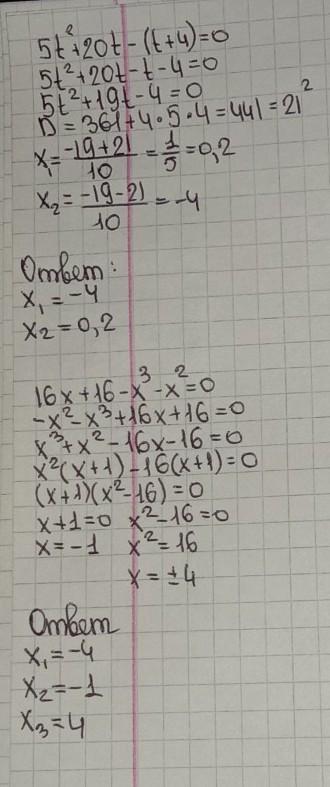 5t²+20t-(t+4)=0
5t²+20t-t-4=0
5t²+19t-4=0
D=361+4·5·4=441=21²
x₁=(-19+21)/10=1/5=0,2
x₂=(-19-21)/10=-4
Ответ:
x₁=-4
x₂=0,2
16x+16-x³-x²=0
-x²-x³+16x+16=0
x³+x²-16x-16=0
x²(x+1)-16(x+1)=0
(x+1)(x²-16)=0
x+1=0 x²-16=0
x=-1 x²=16
x=±4
Ответ
x₁=-4
x₂=-1
x₃=4